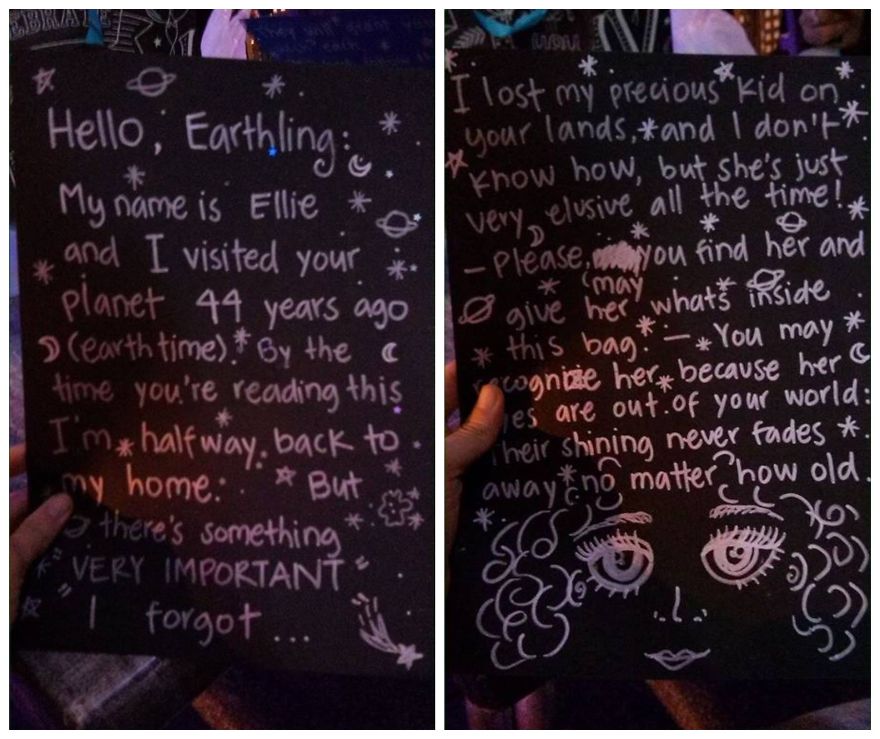 they will grant you
each
Hello, Earthling:
My name is Ellie
and I visited your
planet 44 years ago
(earth time). By the
time you're reading this
I'm halfway back to
my home. But
there's something
"VERY IMPORTANT"
I forgot...
YOU
I lost my precious kid on
your lands, and I don't
know how, but she's just
very elusive all the time!
– Please, you find her and
(may
give her whats inside
this bag. – You may
recognize her because her
eyes are out of your world:
Their shining never fades
away no matter how old.